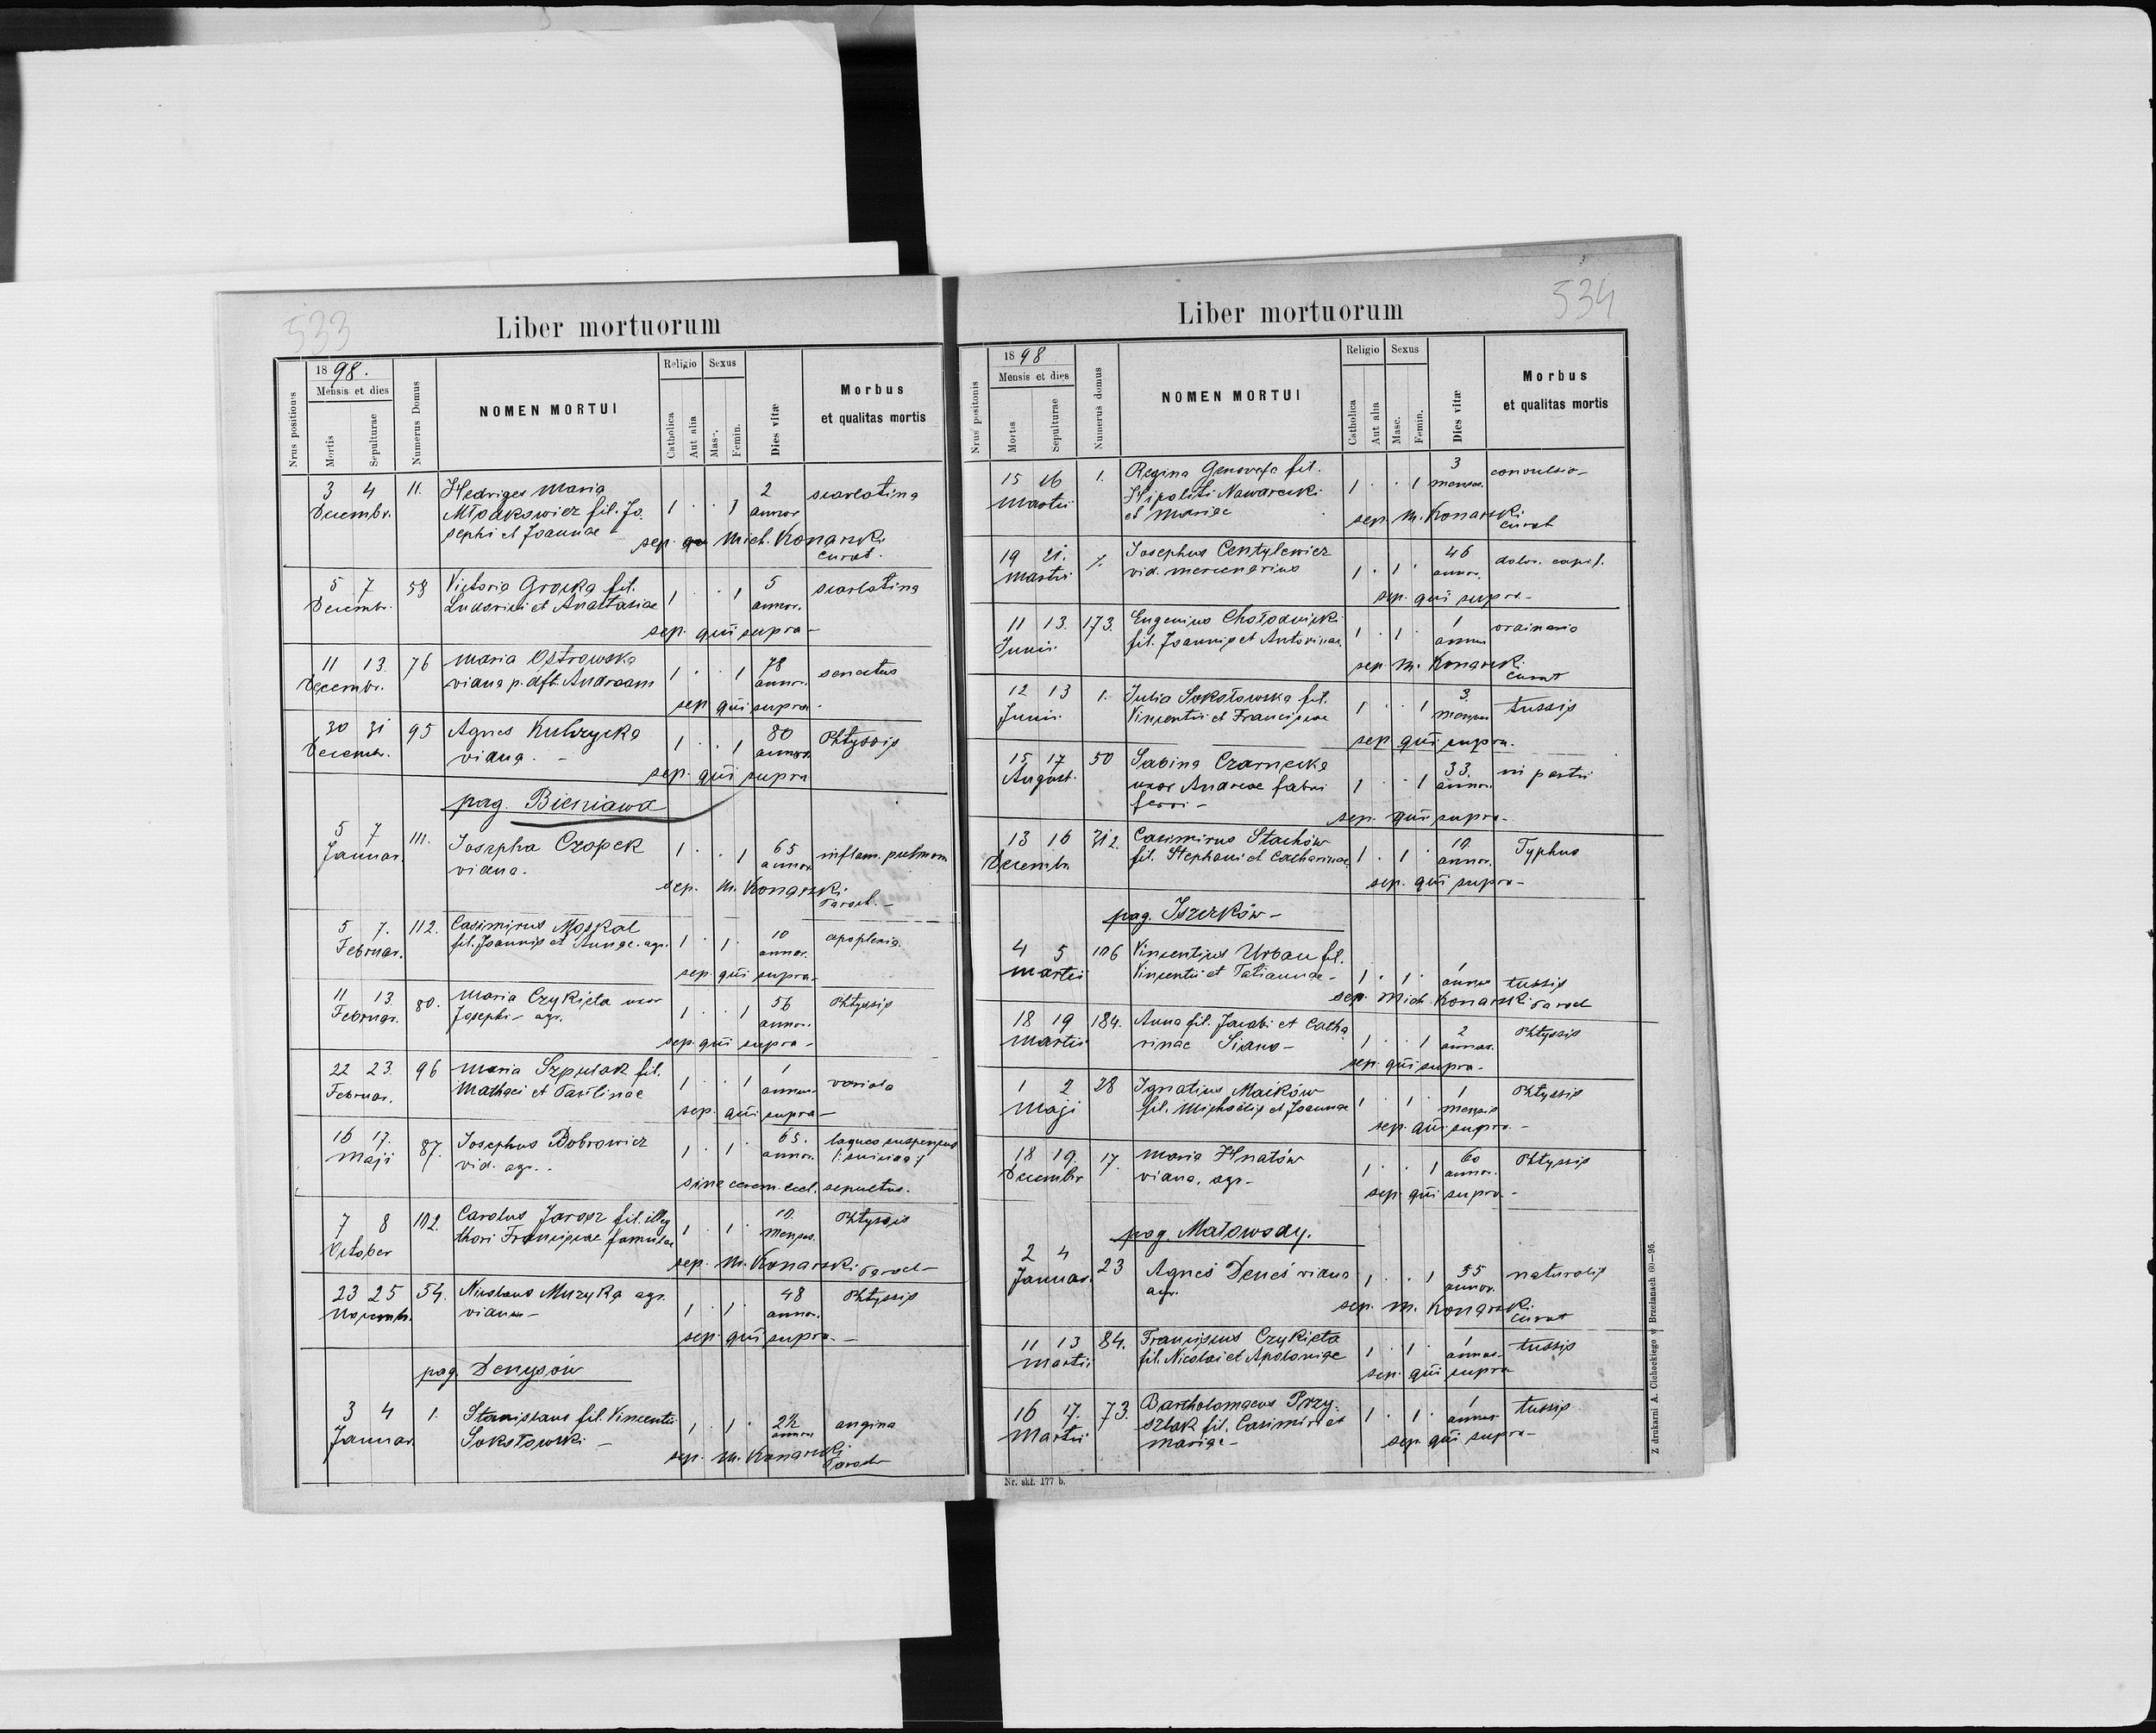 533
Liber mortuorum
Nrus positionis
1898.
Mensis et dies
Mortis
Sepulturae
Numerus Domus
NOMEN MORTUI
Religio
Catholica
Aut alia
Sexus
Masc.
Femin.
Dies vitæ
Morbus
et qualitas mortis
3 4 11. Hedviges Maria 2 scarlatina
Decembr. Młodkowicz fil. Jo 1 . . 1 annor
sephi et Joannae sep. Mich. Konarski
curat.
5 7 58 Victoria Grocka fil. 5 scarlatina
Decembr. Ludovici et Anastasiae 1 . . 1 annor.
sep. qui supra –
11 13. 76 Maria Ostrowska 78 senectus
Decembr. vidua p. dft. Andream 1 . . 1 annor.
sep qui supra –
30 31 95 Agnes 80 Phtyssis
Decembr. vidua. – 1 . . 1 annor.
sep. qui supra
pag. Bieniawa
5 7 111. Josepha Czopek 65 inflam. pulmon
Januar. vidua. 1 . . 1 annor
sep. M. Konarski
Paroch. –
5 7. 112. Casimirus Moskal 10 apoplexia
Februar. fil. Joannis et Annae. agr. 1 . 1 . annor.
sep. qui supra –
11 13 80. Maria Czykieta uxor 56 Phtyssis
Februar. Josephi – agr. 1 . . 1 annor.
sep. qui supra –
22 23. 96 Maria Szpulak fil. 1 variola
Februar. Mathaei et Paulinae 1 . . 1 annus
sep. qui supra –
16 17. 87. Josephus Bobrowicz 65. laqueo suspensus
Maji vid. agr. . 1 . 1 . annor.
sine cerem. eccl. sepultus.
7 8 102. Carolus Jarosz fil. illeg 10. Phtyssis
October thori Franciscae famulae 1 . 1 . menses.
sep. M. Konarski Paroch –
23 25 54. Nicolaus Muzyka agr. 48 Phtyssis
Novembr. viduus – 1 . 1 . annor.
sep. qui supra. –
pag. Denysów
3 4 1. Stanislaus fil. Vincentii 2½ angina
Januar. Sokołowski – 1 . 1 . annor
sep. M. Konarski
Paroch
534
Liber mortuorum
Nrus positionis
1898
Mensis et dies
Mortis
Sepulturae
Numerus domus
NOMEN MORTUI
Religio
Catholica
Aut alia
Sexus
Masc.
Femin.
Dies vitæ
Morbus
et qualitas mortis
15 16 1. Regina Genovefa fil. 3 convulsio –
Martii Hipoliti Nawarecki 1 . . 1 menses.
et Mariae sep. M. Konarski
curat
19 21. 7. Josephus Centylewicz 46 dolor. capit.
Martii vid. mercenarius 1 . 1 . annor.
sep. qui supra –
11 13. 173. Eugenius Chołodnicki 1 ordinario
Junii fil. Joannis et Antoninae. 1 . 1 . annus
sep M. Konarski
Curat
12 13 1. Julia Sokołowska fil. 3 tussis
Junii Vincentii et Franciscae 1 . . 1 menses
sep. qui supra.
15 17 50 Sabina Czarnecka 33. in partu
August. uxor Andreae fabri 1 . . 1 annor.
ferri –
sep. qui supra –
13 16 312. Casimirus Stachów 10. Typhus
Decembr. fil. Stephani et Catharinae 1 . 1 . annor.
sep. qui supra –
pag. Iszczków –
4 5 106 Vincentius Urban fil. 1
Martii Vincentii et Tatiannae – 1 . 1 . annus tussis
sep. Mich. Konarski Paroch
18 19 184. Anna fil. Jacobi et Catha 2 Phtyssis
Martii rinae Siano – 1 . . 1 annor.
sep. qui supra –
1 2 28 Ignatius Maików 1 Phtyssis
Maji fil. Michaëlis et Joannae 1 . 1 . mensis
sep. qui supra –
18 19. 17. Maria Hnatów 60 Phtyssis
Decembr vidua, agr – 1 . . 1 annor.
sep. qui supra. –
pag. Małowody.
2 4 23 Agnes Deneś vidua 55 naturalis
Januar. agr. 1 . . 1 annor.
sep. M. Konarski
Curat
11 13 84. Franciscus Czykieta 1 tussis
Martii fil. Nicolai et Apoloniae 1 . 1 . annus.
sep. qui supra
16 17. 73. Bartholomaeus Przy- 1 tussis
Martii szlak fil. Casimiri et 1 . 1 . annus
Mariae – sep. qui supra –
Nr. skł. 177 b.
Z drukarni A. Cichockiego w Brzeżanach 60—95.